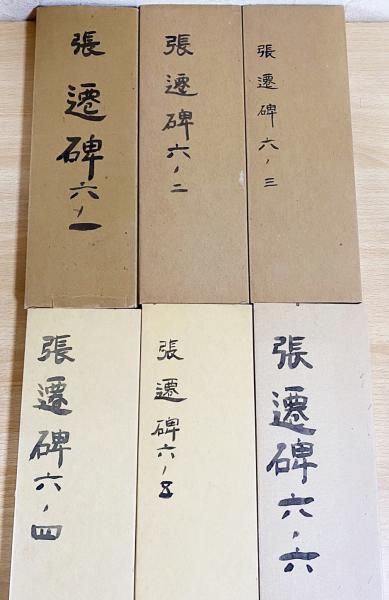 張遷碑六ノ一
張遷碑六ノ二
張遷碑六ノ三
張遷碑六ノ四
張遷碑六ノ五
張遷碑六ノ六